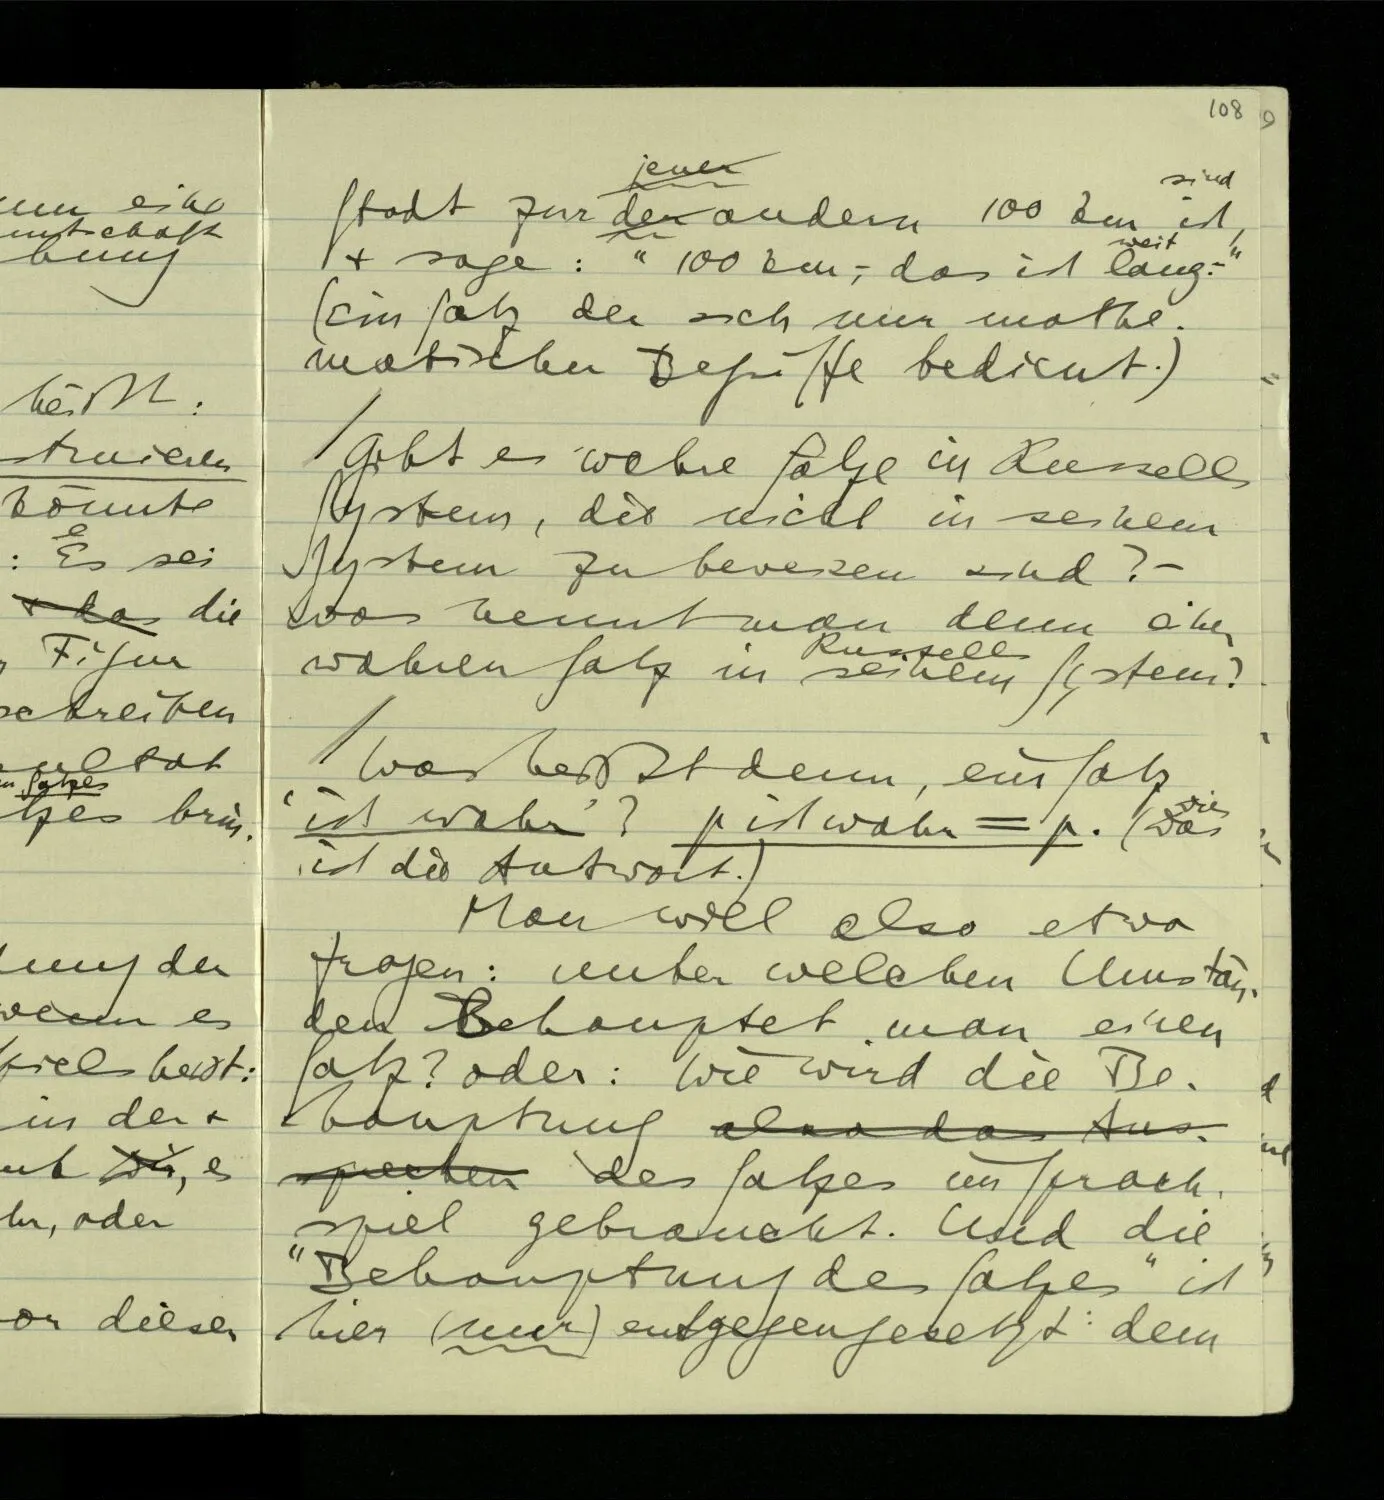 108
jener
sind
Stadt zur der andern 100 km ist,
weit
+ sage: "100 km,- das ist lang."
(Ein Satz der sich nur mathe-
matischer Begriffe bedient.)
/ Gibt es wahre Sätze in Russells
System, die nicht in seinem
System zu beweisen sind? -
was nennt man denn einen
Russells
wahren Satz in seinem System?
/ Was heißt denn, ein Satz
wie
'ist wahr'? p ist wahr = p. (Das
ist die Antwort.)
Man will also etwa
fragen: unter welchen Umstän-
den Behauptet man einen
Satz? oder: Wie wird die Be-
hauptung also das Aus-
sprechen des Satzes im Sprach-
spiel gebraucht. Und die
"Behauptung des Satzes" ist
hier (nur) entgegengesetzt: dem
eine
heißt:
könnte
: Es sei
+ das die
Figur
schreiben
Satzes
der
wenn es
in der +
wir, es
oder
dieser